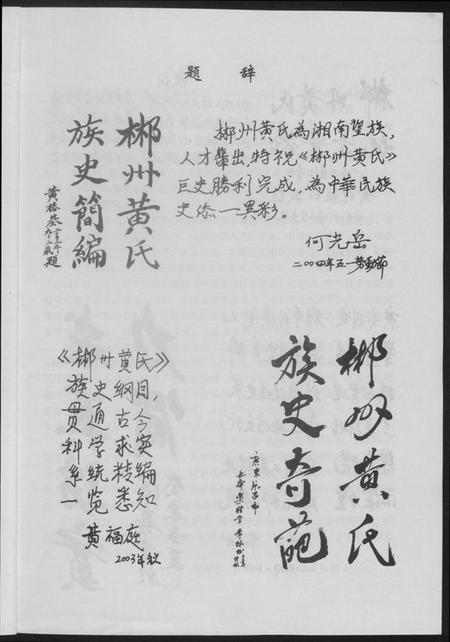 题辞
郴州黄氏
族史簡編
郴州黄氏為湘南望族，
人才輩出，特祝《郴州黄氏》
巨史勝利完成，為中華民族
史添一異彩。
何光岳
二00四年五一劳動節
《郴州黄氏》
族史綱目，
贯通古今
科学求实
系統精編
一览悉知
黄福庭
2003年秋
郴州黄氏
族史奇葩